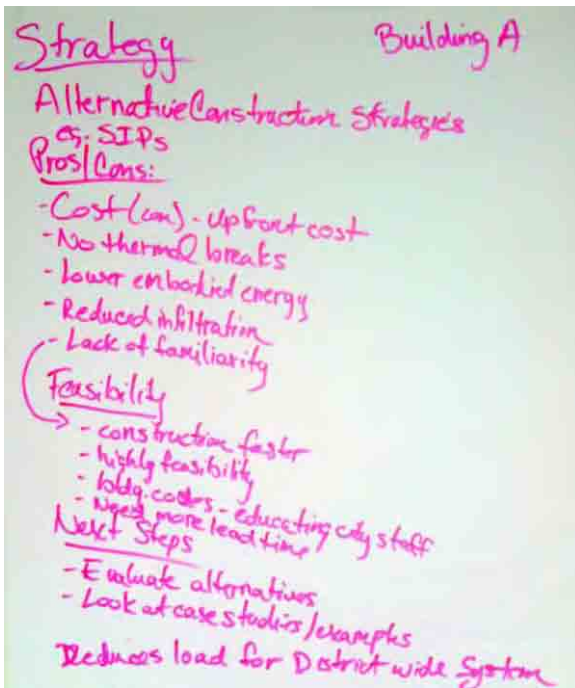 Strategy Building A
Alternative Construction Strategies
eg. SIPs
Pros/Cons:
- Cost (con) - upfront cost
- No thermal breaks
- Lower embodied energy
- Reduced infiltration
- Lack of familiarity
Feasibility
- construction faster
- highly feasibility
- bldg. codes - educating city staff
- Need more lead time
Next Steps
- Evaluate alternatives
- Look at case studies/examples
Reduces load for District wide System